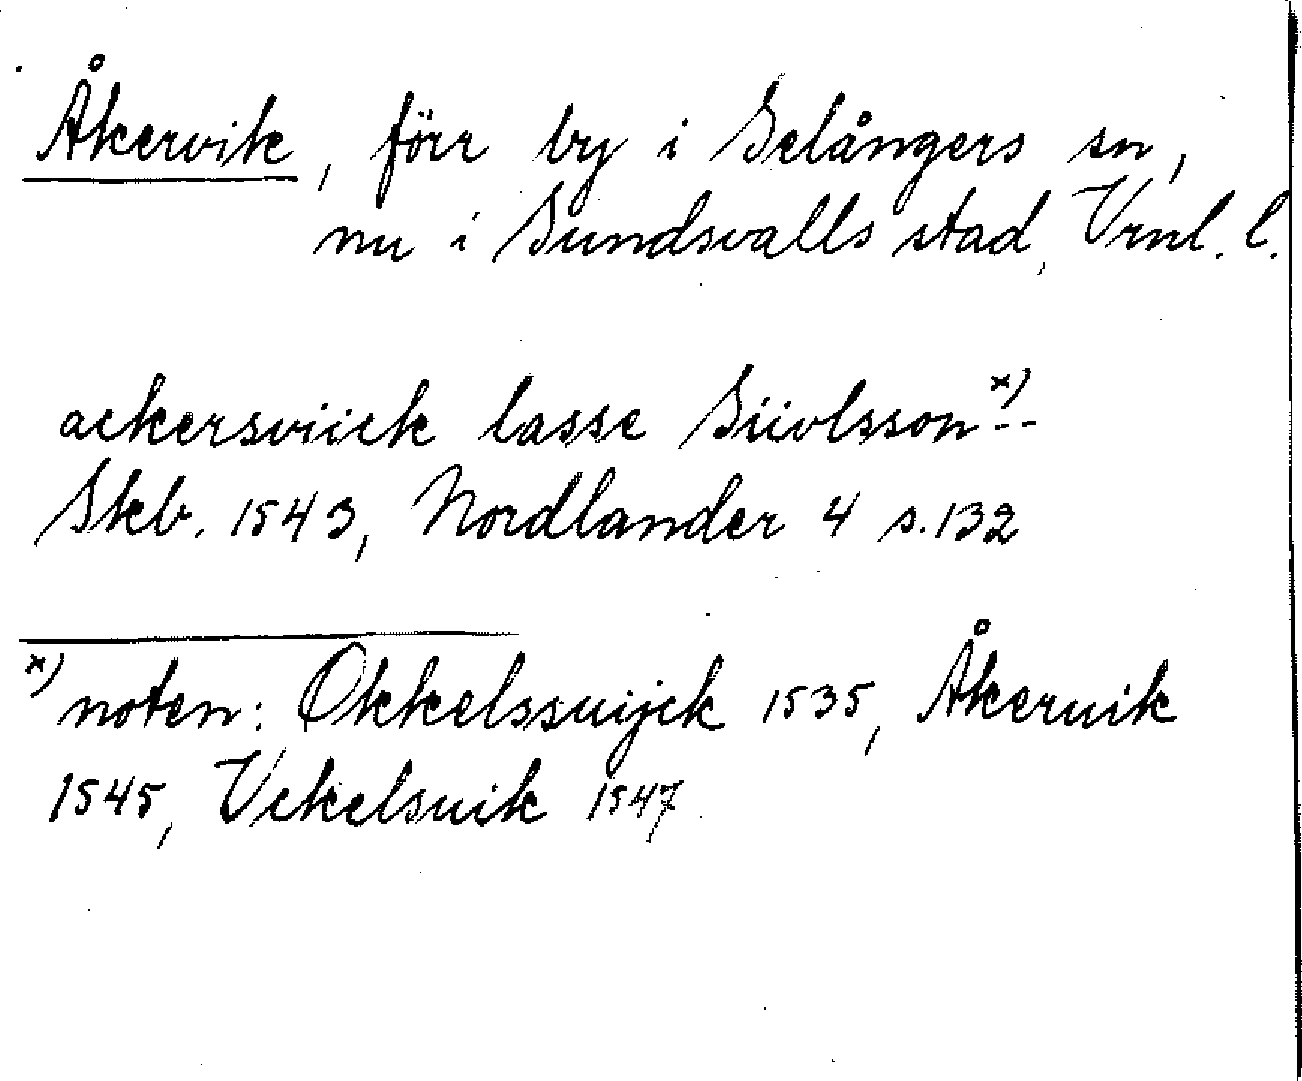 Åkervik, förr by i Selångers sn,
nu i Sundsvalls stad, Vrnl. l.
ackersviick lasse Siivlsson x) --
Skb. 1543, Nordlander 4 s. 132
x) noten: Økkelssuijck 1535, Åkeruik
1545, Vekelsuik 1547